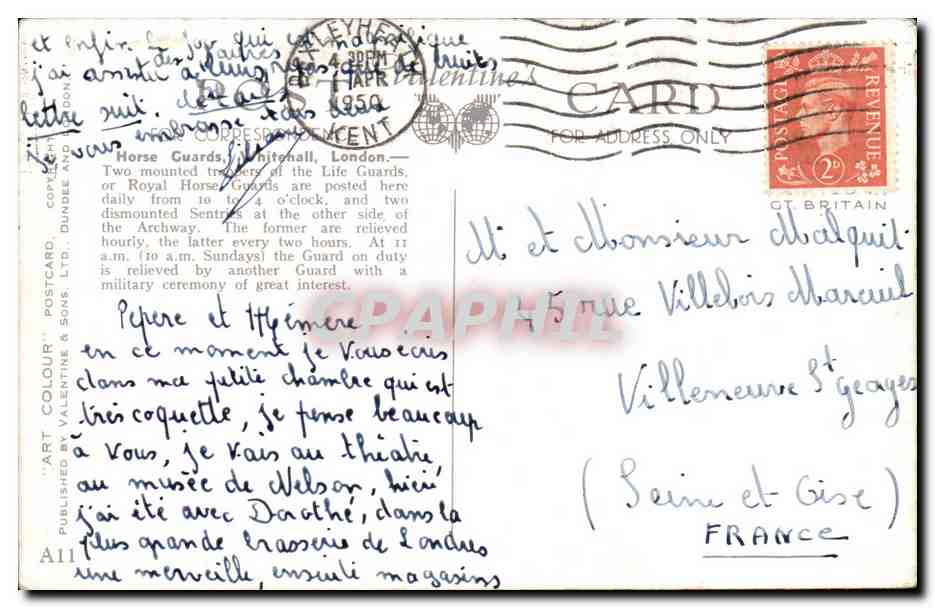 et enfin le jour qui est magnifique
j'ai assisté à
lettre suit. détails
Je vous embrasse tous deux
Valentine's
POST CARD
FOR CORRESPONDENCE
FOR ADDRESS ONLY
430PM
APR
1950
KENT
POSTAGE REVENUE
2D
GT. BRITAIN
Horse Guards, Whitehall, London.—
Two mounted troopers of the Life Guards,
or Royal Horse Guards are posted here
daily from 10 to 4 o'clock, and two
dismounted Sentries at the other side of
the Archway. The former are relieved
hourly, the latter every two hours. At 11
a.m. (10 a.m. Sundays) the Guard on duty
is relieved by another Guard with a
military ceremony of great interest.
Pepere et Mémère
en ce moment je vous ecris
dans ma petite chambre qui est
très coquette, je pense beaucoup
à vous, je vais au théâtre,
au musée de Nelson, hier
j'ai été avec Dorothé, dans la
plus grande brasserie de Londres
une merveille, ensuite magasins
M et Monsieur Malquit
45 rue Villebois Mareuil
Villeneuve St Georges
(Seine et Oise)
FRANCE
"ART COLOUR" POSTCARD, COPYRIGHT
PUBLISHED BY VALENTINE & SONS, LTD., DUNDEE AND LONDON
A11
CPAPHIL